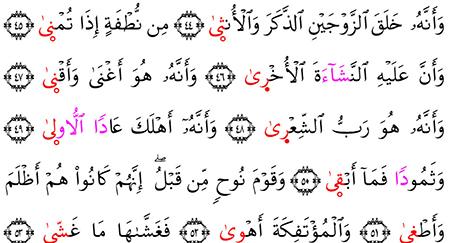 وَأَنَّهُۥ خَلَقَ ٱلزَّوْجَيْنِ ٱلذَّكَرَ وَٱلْأُنثىٰ ﴿٤٤﴾ مِن نُّطْفَةٍ إِذَا تُمْنىٰ ﴿٤٥﴾
وَأَنَّ عَلَيْهِ ٱلنَّشَآءَةَ ٱلْأُخْرىٰ ﴿٤٦﴾ وَأَنَّهُۥ هُوَ أَغْنَىٰ وَأَقْنىٰ ﴿٤٧﴾
وَأَنَّهُۥ هُوَ رَبُّ ٱلشِّعْرىٰ ﴿٤٨﴾ وَأَنَّهُۥٓ أَهْلَكَ عَادًا ٱلُّاولىٰ ﴿٤٩﴾
وَثَمُودًا فَمَآ أَبْقىٰ ﴿٥٠﴾ وَقَوْمَ نُوحٍ مِّن قَبْلُ ۖ إِنَّهُمْ كَانُوا۟ هُمْ أَظْلَمَ
وَأَطْغىٰ ﴿٥١﴾ وَٱلْمُؤْتَفِكَةَ أَهْوىٰ ﴿٥٢﴾ فَغَشَّىٰهَا مَا غَشّىٰ ﴿٥٣﴾